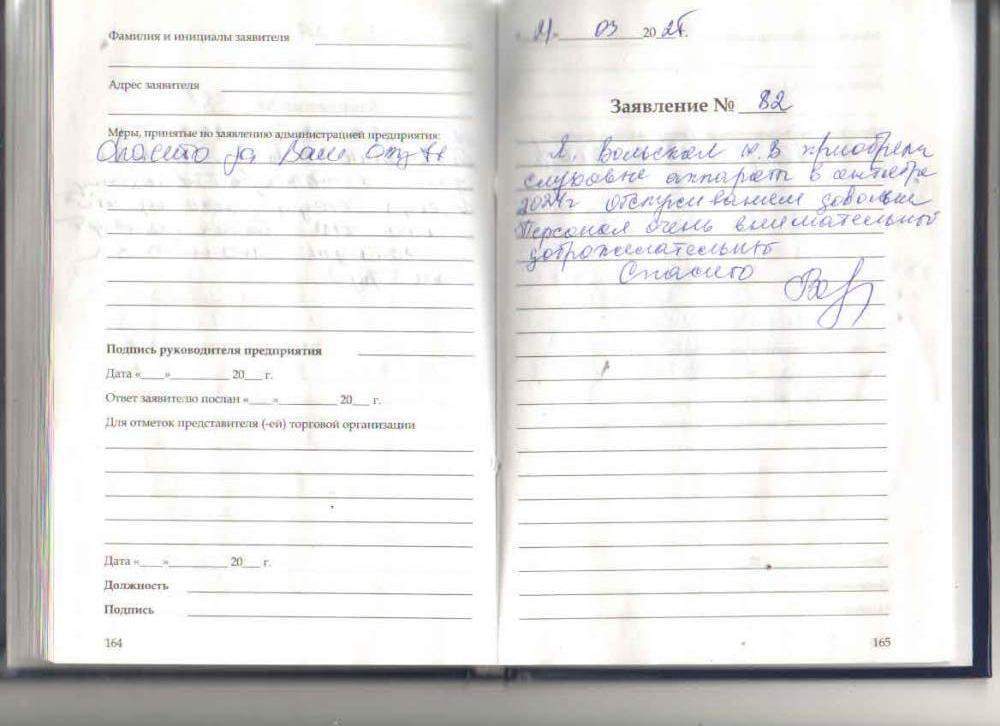 Фамилия и инициалы заявителя
Адрес заявителя
Меры, принятые по заявлению администрацией предприятия:
Спасибо за Ваш отзыв
Подпись руководителя предприятия
Дата «___»________ 20__ г.
Ответ заявителю послан «___»________ 20__ г.
Для отметок представителя (-ей) торговой организации
Дата «___»________ 20__ г.
Должность
Подпись
164
03 2025г.
Заявление № 82
Я, Вольская Н.В приобрела
слуховые аппараты в сентябре
2024г обслуживанием довольны
Персонал очень внимательный
доброжелательный
Спасибо
165